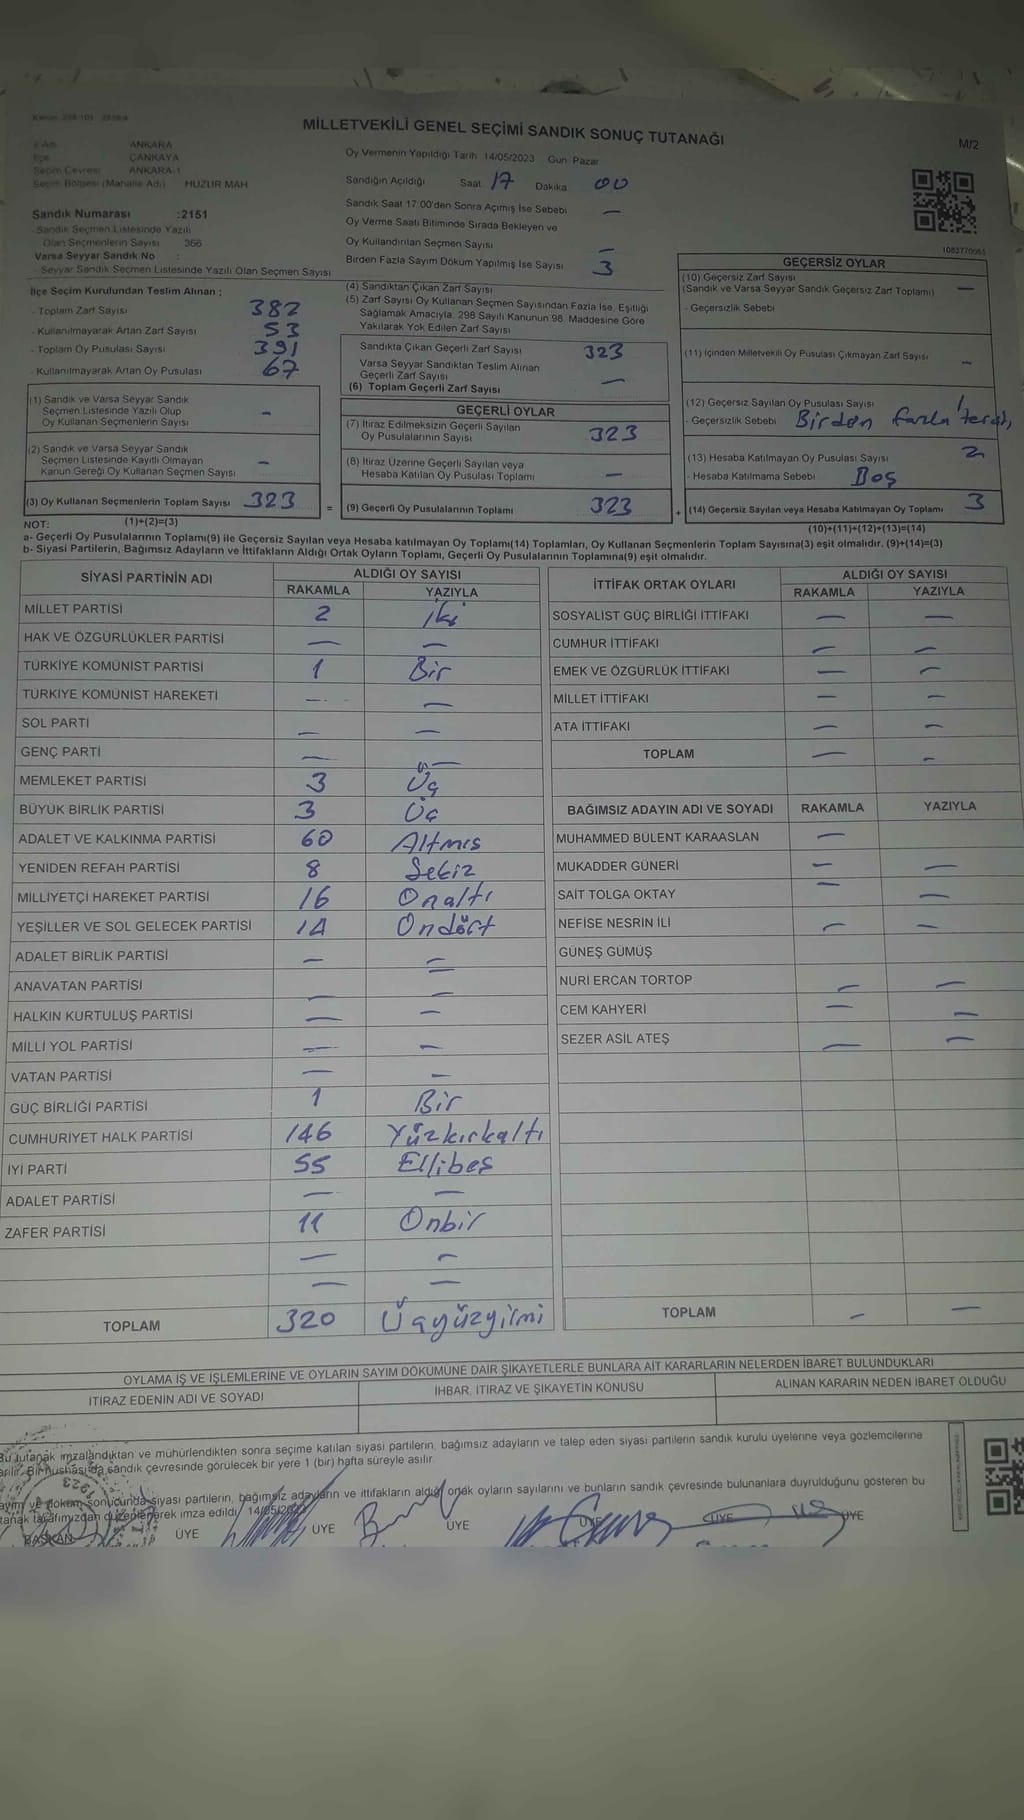 MİLLETVEKİLİ GENEL SEÇİMİ SANDIK SONUÇ TUTANAĞI
M/2
ANKARA
ÇANKAYA
Seçim Çevresi ANKARA-1
Seçim Bölgesi (Mahalle Adı) HUZUR MAH
Sandık Numarası :2151
- Sandık Seçmen Listesinde Yazılı
Olan Seçmenlerin Sayısı 366
Varsa Seyyar Sandık No :
- Seyyar Sandık Seçmen Listesinde Yazılı Olan Seçmen Sayısı
Oy Vermenin Yapıldığı Tarih 14/05/2023 Gün Pazar
Sandığın Açıldığı Saat 17 Dakika 00
Sandık Saat 17:00'den Sonra Açımış İse Sebebi —
Oy Verme Saati Bitiminde Sırada Bekleyen ve
Oy Kullandırılan Seçmen Sayısı —
Birden Fazla Sayım Döküm Yapılmış İse Sayısı 3
1083770065
İlçe Seçim Kurulundan Teslim Alınan ;
- Toplam Zarf Sayısı 382
- Kullanılmayarak Artan Zarf Sayısı 53
- Toplam Oy Pusulası Sayısı 391
- Kullanılmayarak Artan Oy Pusulası 67
(1) Sandık ve Varsa Seyyar Sandık
Seçmen Listesinde Yazılı Olup
Oy Kullanan Seçmenlerin Sayısı —
(2) Sandık ve Varsa Seyyar Sandık
Seçmen Listesinde Kayıtlı Olmayan
Kanun Gereği Oy Kullanan Seçmen Sayısı —
(3) Oy Kullanan Seçmenlerin Toplam Sayısı 323
(1)+(2)=(3)
(4) Sandıktan Çıkan Zarf Sayısı
(5) Zarf Sayısı Oy Kullanan Seçmen Sayısından Fazla İse, Eşitliği
Sağlamak Amacıyla, 298 Sayılı Kanunun 98. Maddesine Göre
Yakılarak Yok Edilen Zarf Sayısı
Sandıkta Çıkan Geçerli Zarf Sayısı 323
Varsa Seyyar Sandıktan Teslim Alınan
Geçerli Zarf Sayısı —
(6) Toplam Geçerli Zarf Sayısı
GEÇERLİ OYLAR
(7) İtiraz Edilmeksizin Geçerli Sayılan
Oy Pusulalarının Sayısı 323
(8) İtiraz Üzerine Geçerli Sayılan veya
Hesaba Katılan Oy Pusulası Toplamı —
= (9) Geçerli Oy Pusulalarının Toplamı 323 +
GEÇERSİZ OYLAR
(10) Geçersiz Zarf Sayısı
(Sandık ve Varsa Seyyar Sandık Geçersiz Zarf Toplamı) —
- Geçersizlik Sebebi
(11) İçinden Milletvekili Oy Pusulası Çıkmayan Zarf Sayısı —
(12) Geçersiz Sayılan Oy Pusulası Sayısı 1
- Geçersizlik Sebebi Birden fazla tercih
(13) Hesaba Katılmayan Oy Pusulası Sayısı 2
- Hesaba Katılmama Sebebi Boş
(14) Geçersiz Sayılan veya Hesaba Katılmayan Oy Toplamı 3
(10)+(11)+(12)+(13)=(14)
NOT:
a- Geçerli Oy Pusulalarının Toplamı(9) ile Geçersiz Sayılan veya Hesaba katılmayan Oy Toplamı(14) Toplamları, Oy Kullanan Seçmenlerin Toplam Sayısına(3) eşit olmalıdır. (9)+(14)=(3)
b- Siyasi Partilerin, Bağımsız Adayların ve İttifakların Aldığı Ortak Oyların Toplamı, Geçerli Oy Pusulalarının Toplamına(9) eşit olmalıdır.
SİYASİ PARTİNİN ADI ALDIĞI OY SAYISI
RAKAMLA YAZIYLA
MİLLET PARTİSİ 2 iki
HAK VE ÖZGÜRLÜKLER PARTİSİ — —
TÜRKİYE KOMÜNİST PARTİSİ 1 Bir
TÜRKİYE KOMÜNİST HAREKETİ — —
SOL PARTİ — —
GENÇ PARTİ — —
MEMLEKET PARTİSİ 3 Üç
BÜYÜK BİRLİK PARTİSİ 3 Üç
ADALET VE KALKINMA PARTİSİ 60 Altmış
YENİDEN REFAH PARTİSİ 8 Sekiz
MİLLİYETÇİ HAREKET PARTİSİ 16 Onaltı
YEŞİLLER VE SOL GELECEK PARTİSİ 14 Ondört
ADALET BİRLİK PARTİSİ — —
ANAVATAN PARTİSİ — —
HALKIN KURTULUŞ PARTİSİ — —
MİLLİ YOL PARTİSİ — —
VATAN PARTİSİ — —
GÜÇ BİRLİĞİ PARTİSİ 1 Bir
CUMHURİYET HALK PARTİSİ 146 Yüzkırkaltı
İYİ PARTİ 55 Ellibeş
ADALET PARTİSİ — —
ZAFER PARTİSİ 11 Onbir
— —
— —
TOPLAM 320 Üçyüzyirmi
İTTİFAK ORTAK OYLARI ALDIĞI OY SAYISI
RAKAMLA YAZIYLA
SOSYALİST GÜÇ BİRLİĞİ İTTİFAKI — —
CUMHUR İTTİFAKI — —
EMEK VE ÖZGÜRLÜK İTTİFAKI — —
MİLLET İTTİFAKI — —
ATA İTTİFAKI — —
TOPLAM — —
BAĞIMSIZ ADAYIN ADI VE SOYADI RAKAMLA YAZIYLA
MUHAMMED BÜLENT KARAASLAN —
MUKADDER GÜNERİ — —
SAİT TOLGA OKTAY — —
NEFİSE NESRİN İLİ — —
GÜNEŞ GÜMÜŞ
NURİ ERCAN TORTOP — —
CEM KAHYERİ — —
SEZER ASİL ATEŞ — —
TOPLAM — —
OYLAMA İŞ VE İŞLEMLERİNE VE OYLARIN SAYIM DÖKÜMÜNE DAİR ŞİKAYETLERLE BUNLARA AİT KARARLARIN NELERDEN İBARET BULUNDUKLARI
İTİRAZ EDENİN ADI VE SOYADI İHBAR, İTİRAZ VE ŞİKAYETİN KONUSU ALINAN KARARIN NEDEN İBARET OLDUĞU
Bu tutanak imzalandıktan ve mühürlendikten sonra seçime katılan siyasi partilerin, bağımsız adayların ve talep eden siyasi partilerin sandık kurulu üyelerine veya gözlemcilerine
Bir nüshası da sandık çevresinde görülecek bir yere 1 (bir) hafta süreyle asılır.
ve döküm sonucunda siyasi partilerin, bağımsız adayların ve ittifakların aldığı ortak oyların sayılarını ve bunların sandık çevresinde bulunanlara duyrulduğunu gösteren bu
tarafımızdan düzenlenerek imza edildi. 14/05/2023
BAŞKAN ÜYE ÜYE ÜYE ÜYE ÜYE ÜYE